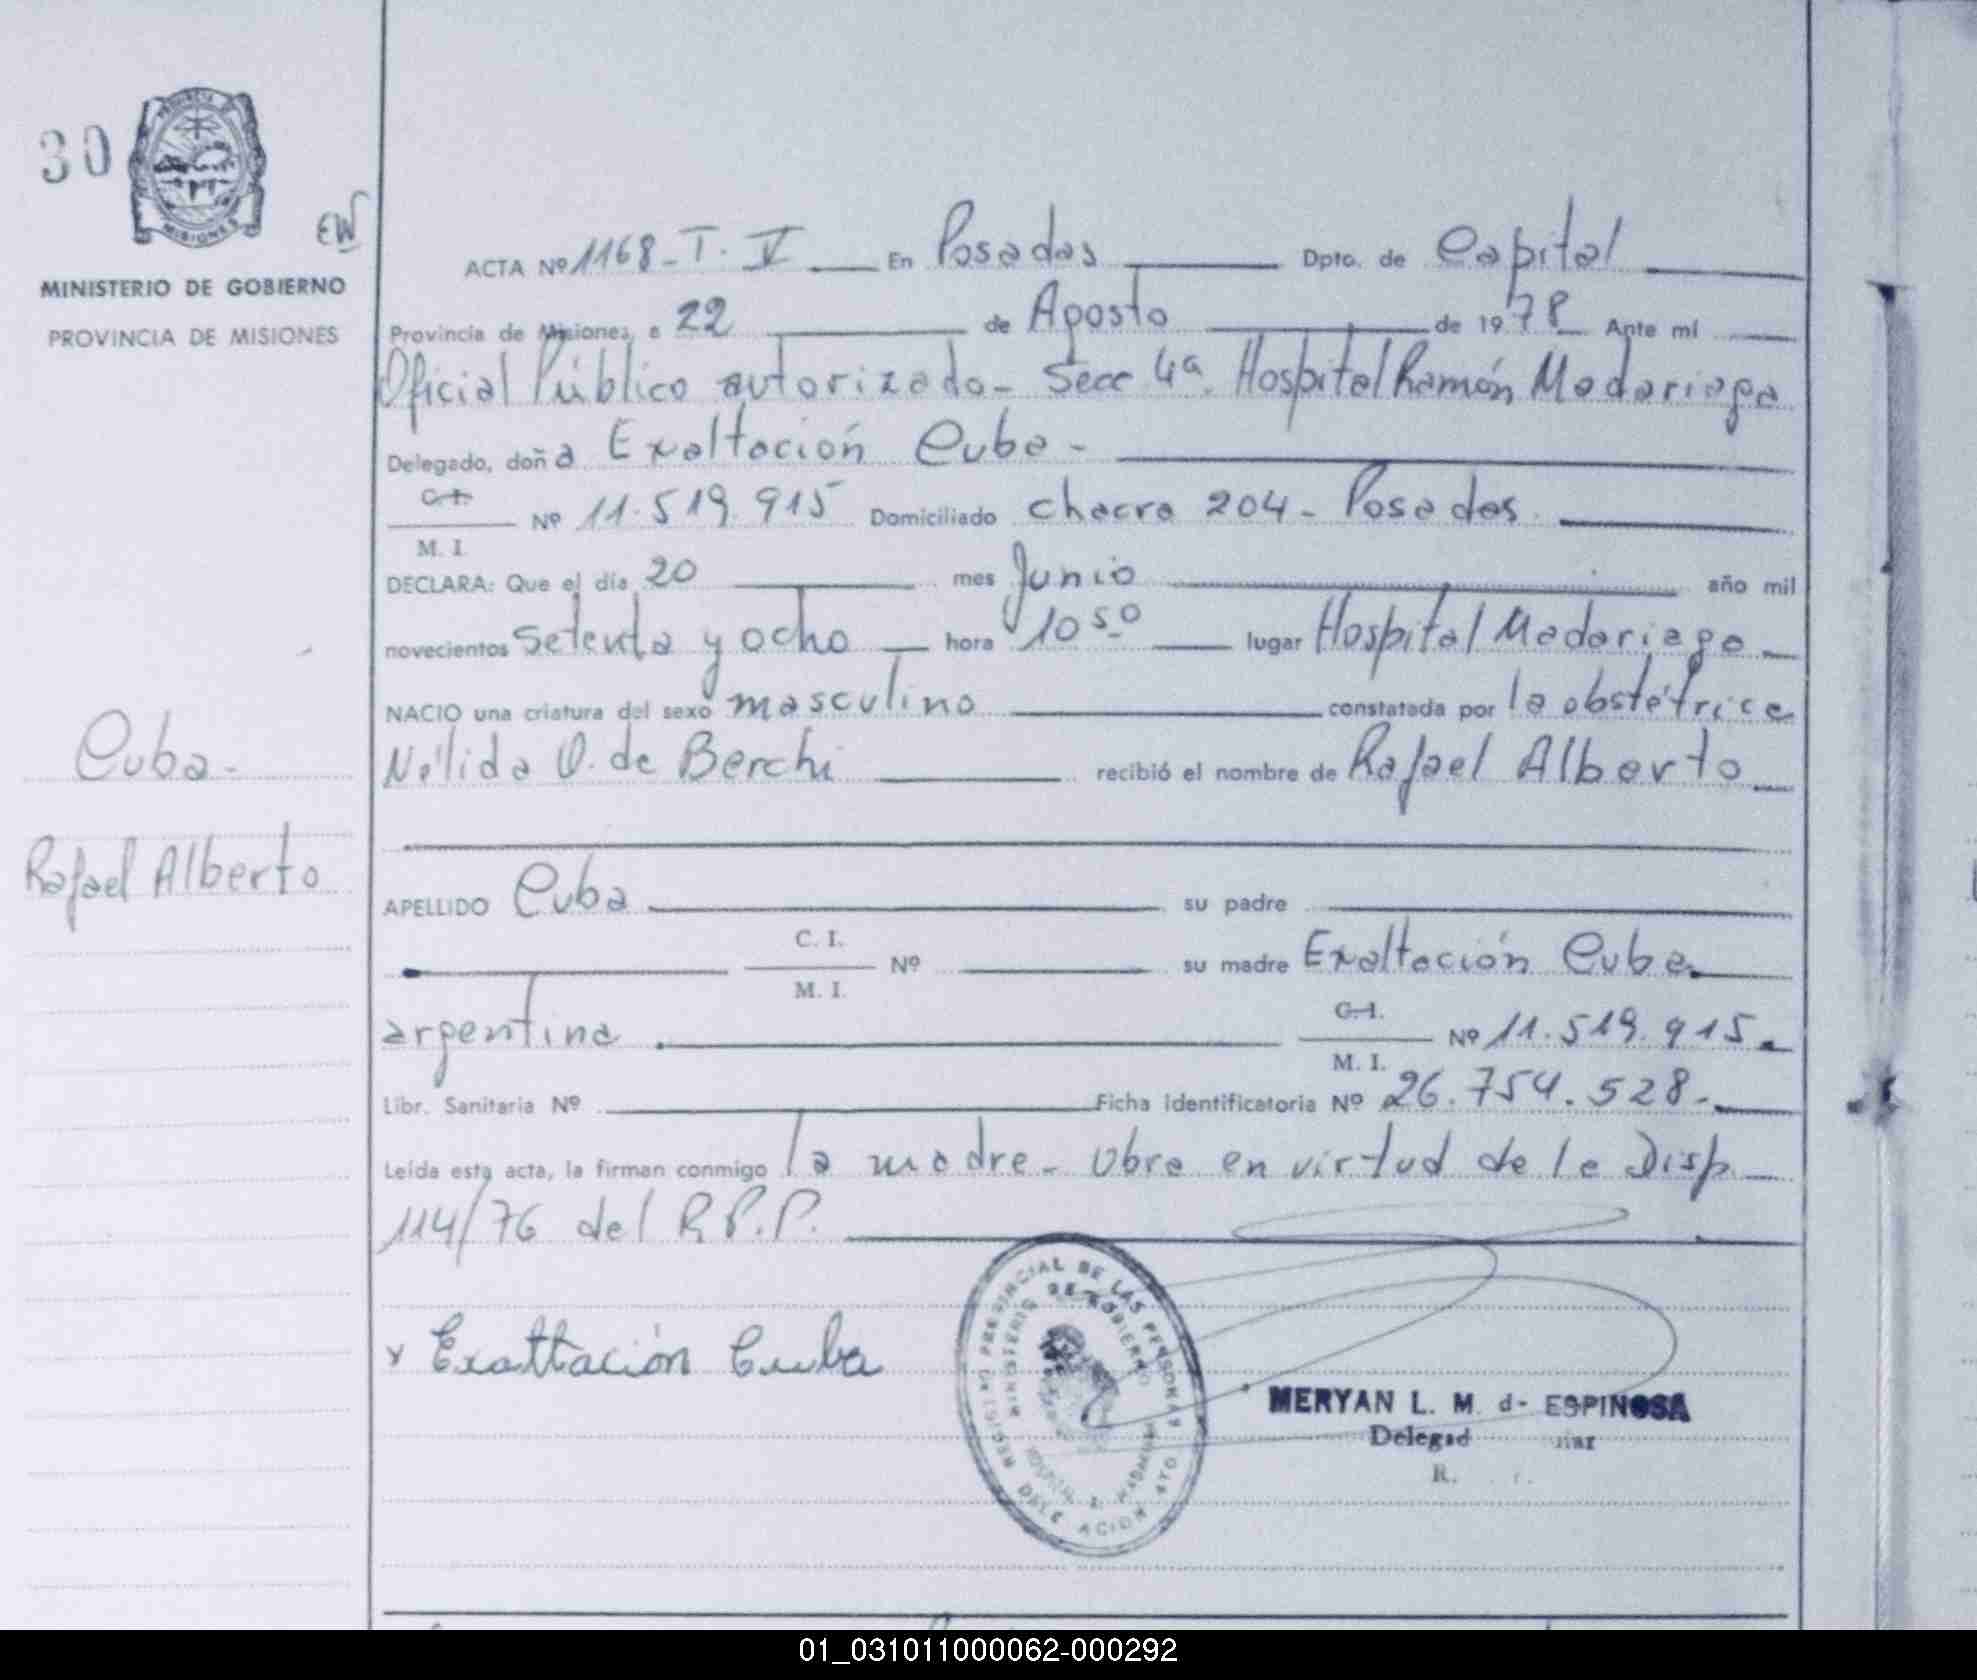 30
PROVINCIA DE
MISIONES
EW
MINISTERIO DE GOBIERNO
PROVINCIA DE MISIONES
Cuba-
Rafael Alberto
ACTA Nº 1168-T. V En Posadas Dpto. de Capital
Provincia de Misiones, a 22 de Agosto de 1978 Ante mí
Oficial Público autorizado- Secc 4ª. Hospital Ramón Madariaga
Delegado, doña Exaltación Cuba-
C. I.
Nº 11.519.915 Domiciliado chacra 204- Posadas
M. I.
DECLARA: Que el día 20 mes Junio año mil
novecientos setenta y ocho hora 10 50 lugar Hospital Madariaga
NACIO una criatura del sexo masculino constatada por la obstétrice
Nélida O. de Berchi recibió el nombre de Rafael Alberto
APELLIDO Cuba su padre
C. I.
Nº su madre Exaltación Cuba
M. I.
argentina
C. I.
Nº 11.519.915.
M. I.
Libr. Sanitaria Nº Ficha identificatoria Nº 26.754.528.-
Leída esta acta, la firman conmigo la madre- Obra en virtud de la Disp.
114/76 del R.P.P.
x Exaltación Cuba
REGISTRO PROVINCIAL DE LAS PERSONAS
MINISTERIO DE GOBIERNO
MERYAN L. M. d- ESPINOSA
R.
01_031011000062-000292